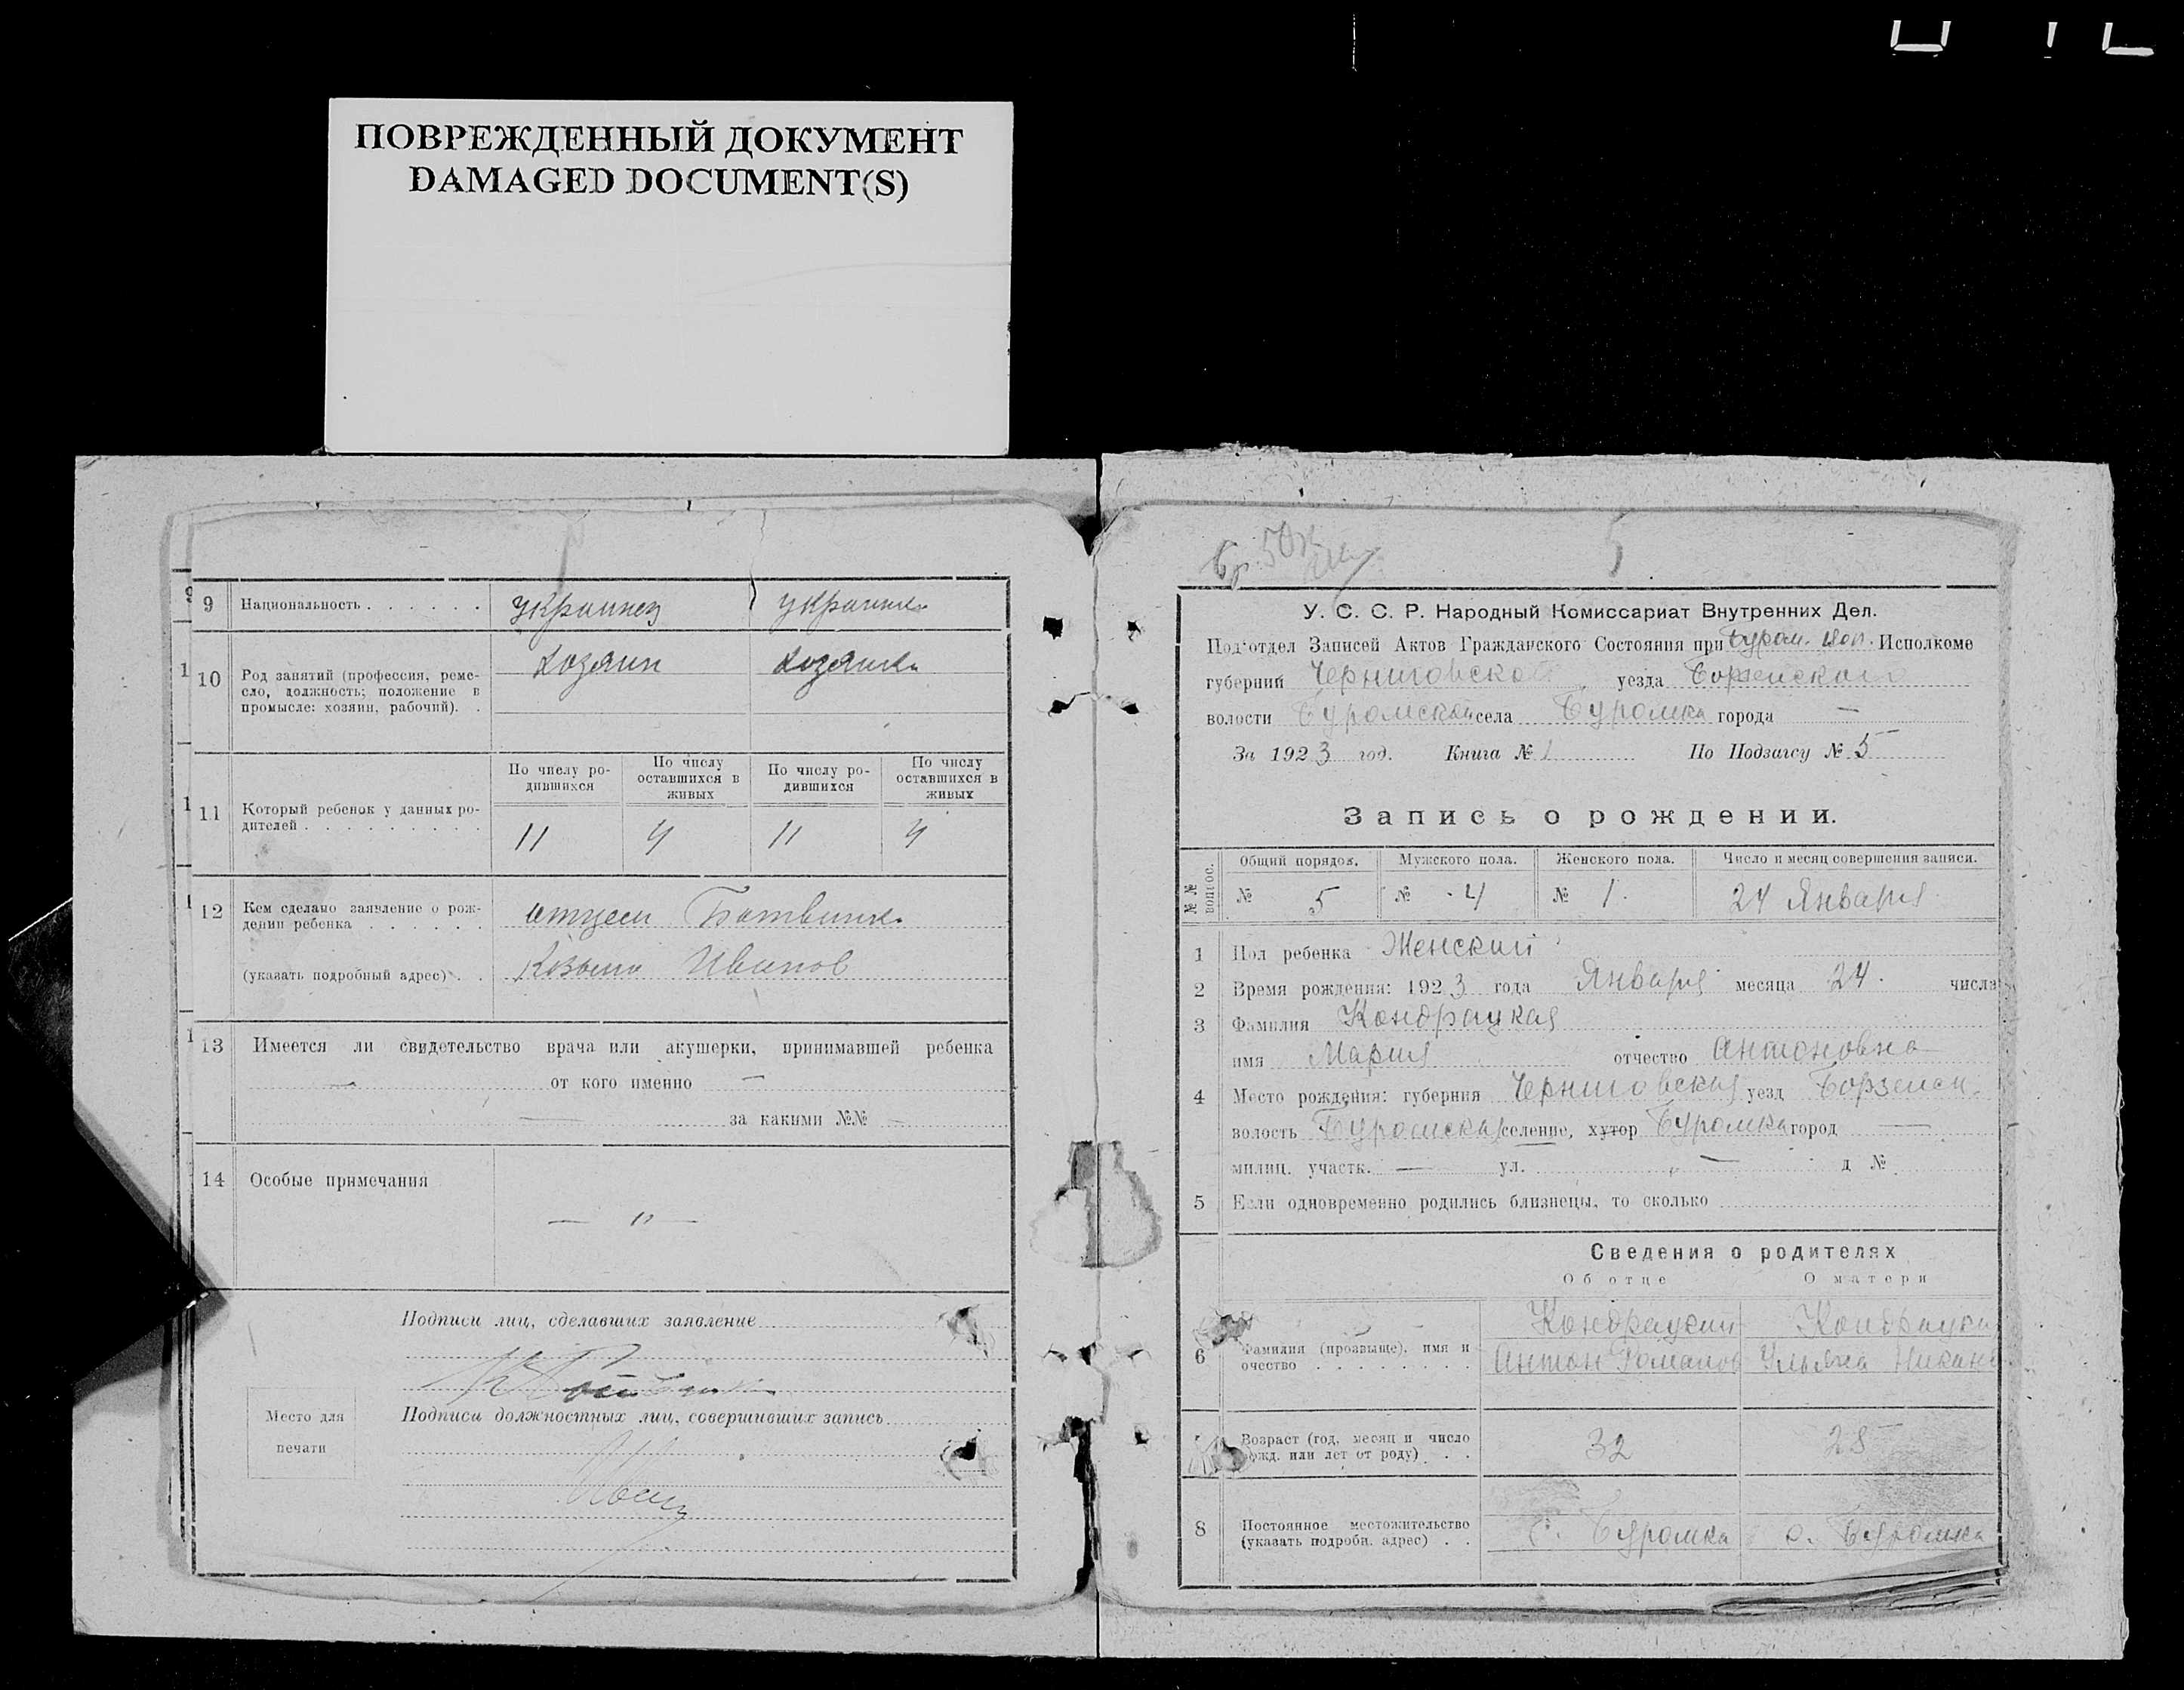 ПОВРЕЖДЕННЫЙ ДОКУМЕНТ
DAMAGED DOCUMENT(S)
9 Национальность украинец украинка
10 Род занятий (профессия, реме-
сло, должность; положение в
промысле: хозяин, рабочий).
хозяин хозяинка
11 Который ребенок у данных ро-
дителей
По числу ро-
дившихся
По числу
оставшихся в
живых
По числу ро-
дившихся
По числу
оставшихся в
живых
11 4 11 4
12 Кем сделано заявление о рож-
дении ребенка
отцем Ботвинка
(указать подробный адрес) Козьма Иванов
13 Имеется ли свидетельство врача или акушерки, принимавшей ребенка
— от кого именно —
— за какими №№ —
14 Особые примечания
— " —
Подписи лиц, сделавших заявление
Место для
печати
Подписи должностных лиц, совершивших запись
5
У. С. С. Р. Народный Комиссариат Внутренних Дел.
Подотдел Записей Актов Гражданского Состояния при Буром. Вол. Исполкоме
губернии Черниговской уезда Борзенского
волости Буромской села Буромка города —
За 1923 год. Книга № 1 По Подзагсу № 5
Запись о рождении.
№№ вопрос.
Общий порядок. Мужского пола. Женского пола. Число и месяц совершения записи.
№ 5 № 4 № 1 24 Января
1 Пол ребенка Женский
2 Время рождения: 1923 года Января месяца 24 числа
3 Фамилия Кондрацкая
имя Мария отчество Антоновна
4 Место рождения: губерния Черниговская уезд Борзенск.
волость Буромская селение, хутор Буромка город —
милиц. участк. — ул. — д №
5 Если одновременно родились близнецы, то сколько
Сведения о родителях
Об отце О матери
6 Фамилия (прозвище), имя и
очество
Кондрацкий Кондрацка
Антон Романов Ульяна Никано
Возраст (год, месяц и число
рожд. или лет от роду)
32 28
8 Постоянное местожительство
(указать подробн. адрес)
с. Буромка с. Буромка